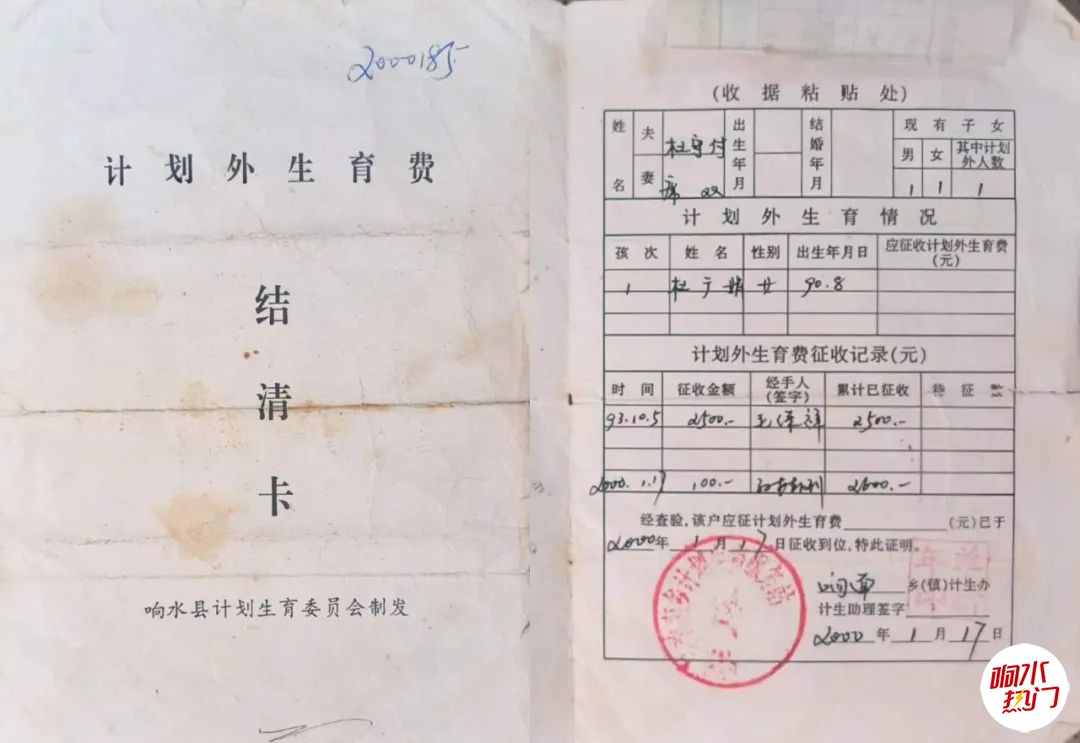 2000185.-
计划外生育费
结
清
卡
响水县计划生育委员会制发
(收据粘贴处)
姓名 夫 杜守付 出生年月 结婚年月 现有子女
妻 席双 男 女 其中计划外人数
1 1 1
计划外生育情况
孩次 姓名 性别 出生年月日 应征收计划外生育费(元)
1 杜广娟 女 90.8
计划外生育费征收记录(元)
时间 征收金额 经手人(签字) 累计已征收 待征款
93.10.5 2500.- 2500.-
2000.1.17 100.- 2600.-
经查验,该户应征计划外生育费 (元)已于
2000年1月17日征收到位,特此证明。
响南 乡(镇)计生办
计生助理签字
2000年1月17日
响水热门